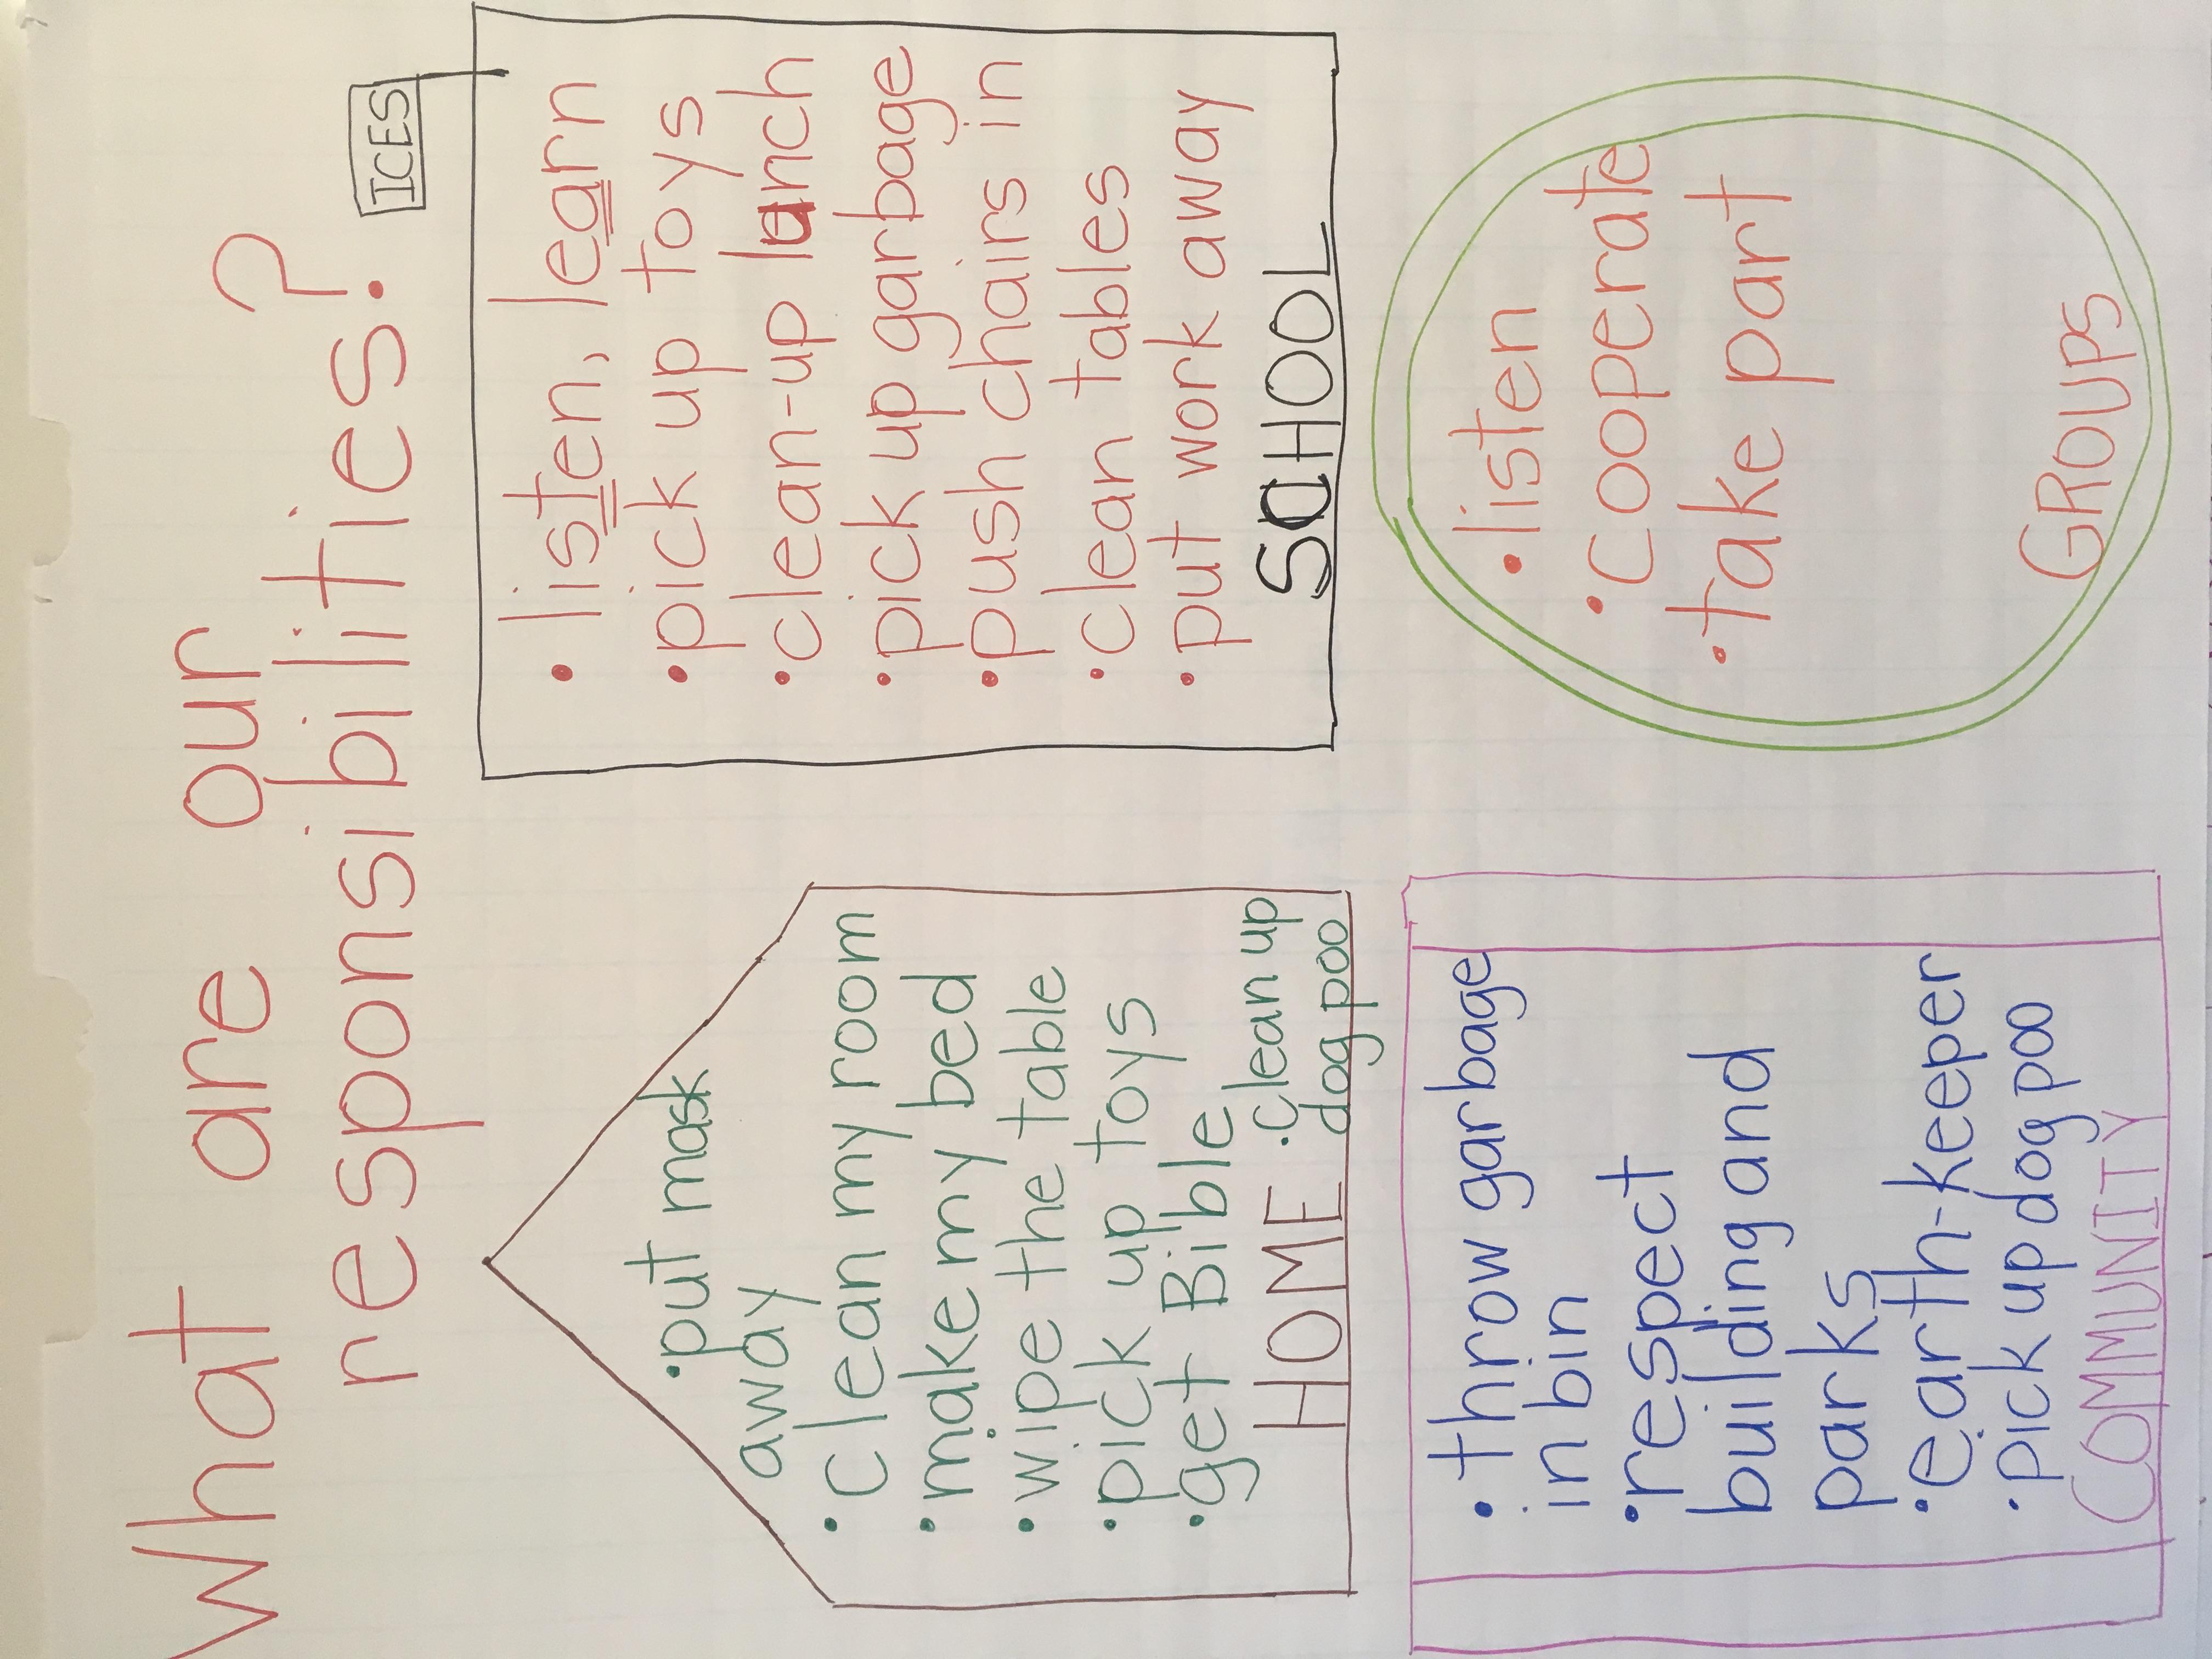 What are our
responsibilities?
• put mask
away
• clean my room
• make my bed
• wipe the table
• pick up toys
• get Bible
• clean up
dog poo
HOME
ICES
• listen, learn
• pick up toys
• clean-up lunch
• pick up garbage
• push chairs in
• clean tables
• put work away
SCHOOL
• throw garbage
in bin
• respect
building and
parks
• earth-keeper
• pick up dog poo
COMMUNITY
• listen
• cooperate
• take part
GROUPS